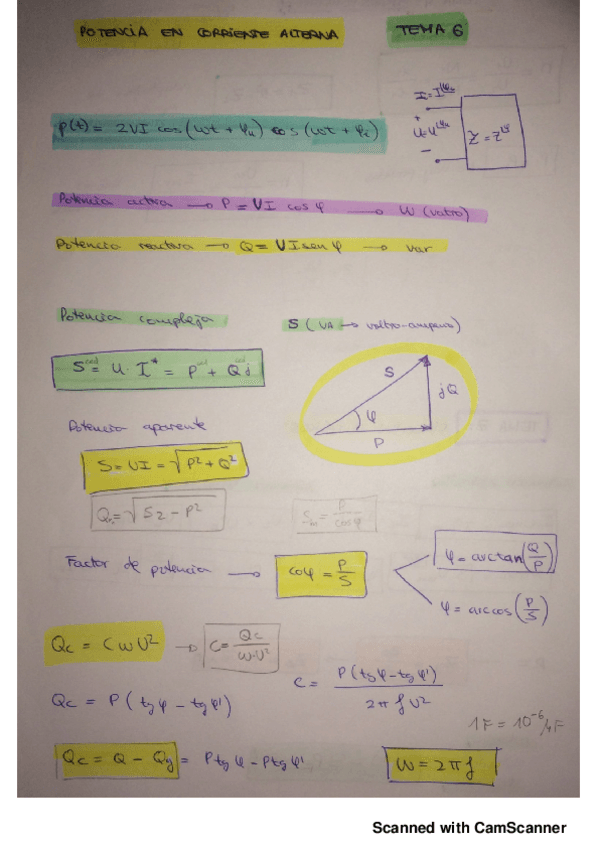 POTENCIA EN CORRIENTE ALTERNA TEMA 6
I = I^φi
p(t) = 2VI cos(ωt + φu) cos(ωt + φi)
+
U = U^φu
Z = Z^φ
−
Potencia activa → P = VI cos φ → W (vatio)
Potencia reactiva → Q = VI sen φ → var
Potencia compleja S (VA → voltio-amperio)
S = U · I* = P + Qj
S
jQ
φ
P
Potencia aparente
S = VI = √P² + Q²
Q = √S2 − P²
S = P/cosφ
Factor de potencia → coφ = P/S
φ = arctan(Q/P)
φ = arccos(P/S)
Qc = CωU² → C = Qc/ω·U²
C = P(tgφ − tgφ')/2πfU²
Qc = P(tgφ − tgφ')
1F = 10⁻⁶ μF
Qc = Q − Qg = Ptgφ − Ptgφ'
W = 2πf
Scanned with CamScanner